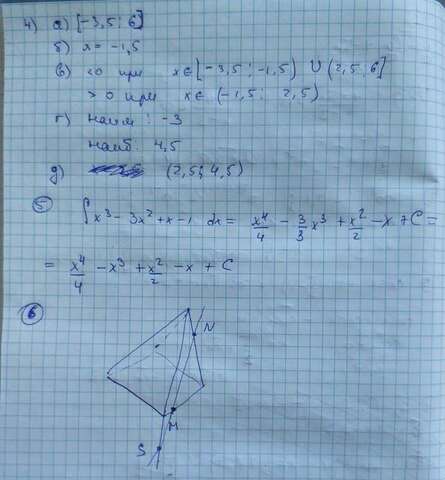 4) а) [-3,5 ; 6]
б) x = -1,5
в) <0 при x ∈ [-3,5 ; -1,5) U (2,5 ; 6]
>0 при x ∈ (-1,5 ; 2,5)
г) наим : -3
наиб. 4,5
д) (2,5 ; 4,5)
5 ∫ x³ - 3x² + x - 1 dx = x⁴/4 - 3/3 x³ + x²/2 - x + C =
= x⁴/4 - x³ + x²/2 - x + C
6
N
M
S